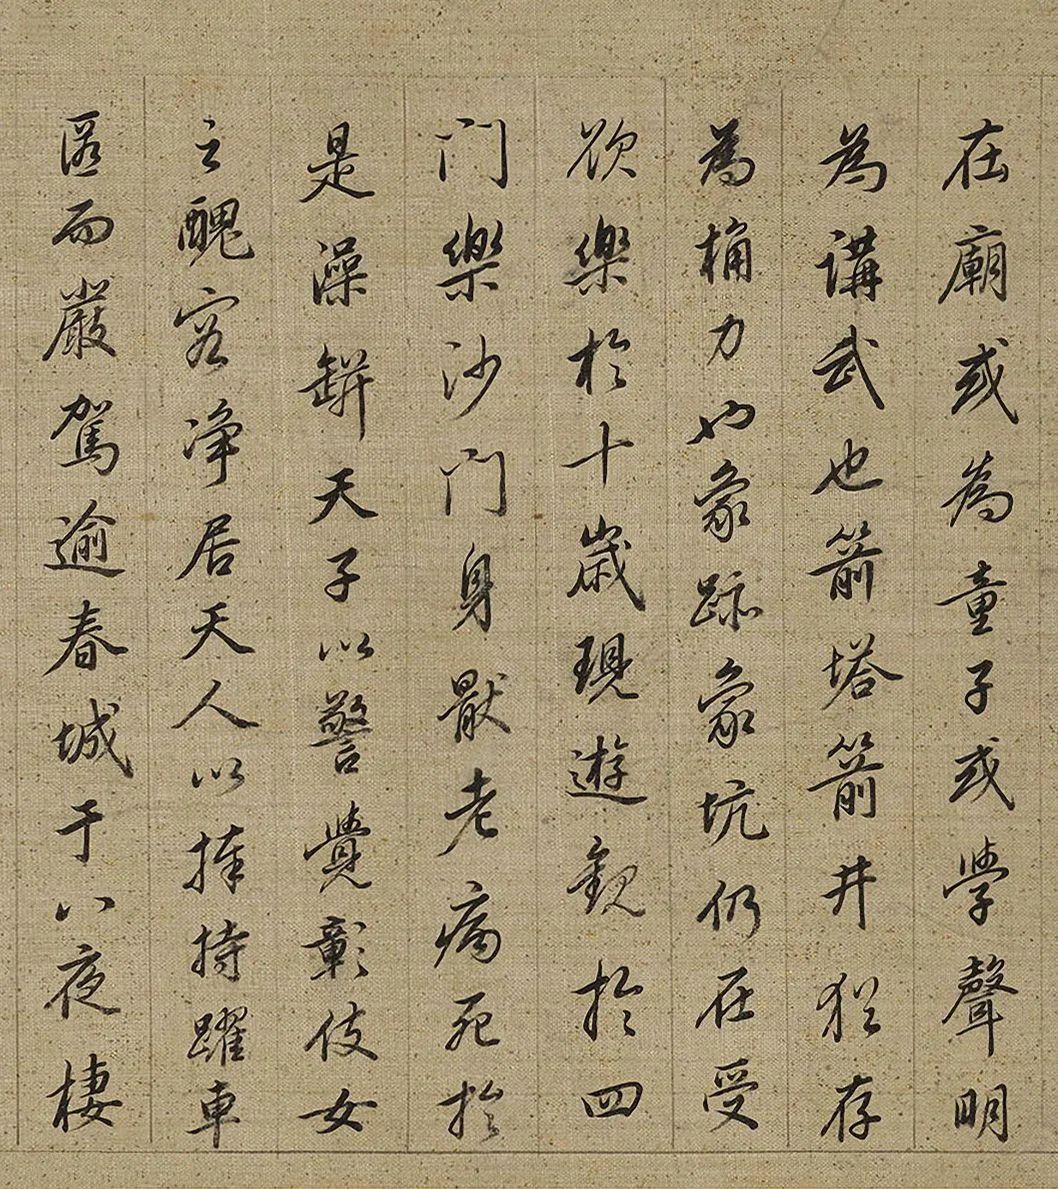 在廟或為童子或學聲明
為講武也箭塔箭井猶存
為桷力也象跡象坑仍在受
欲樂於十歲現遊觀於四
門樂沙門身厭老病死於
是澡缾天子以警覺彰伎女
之醜容淨居天人以捧持躍車
匿而嚴駕逾春城于八夜棲